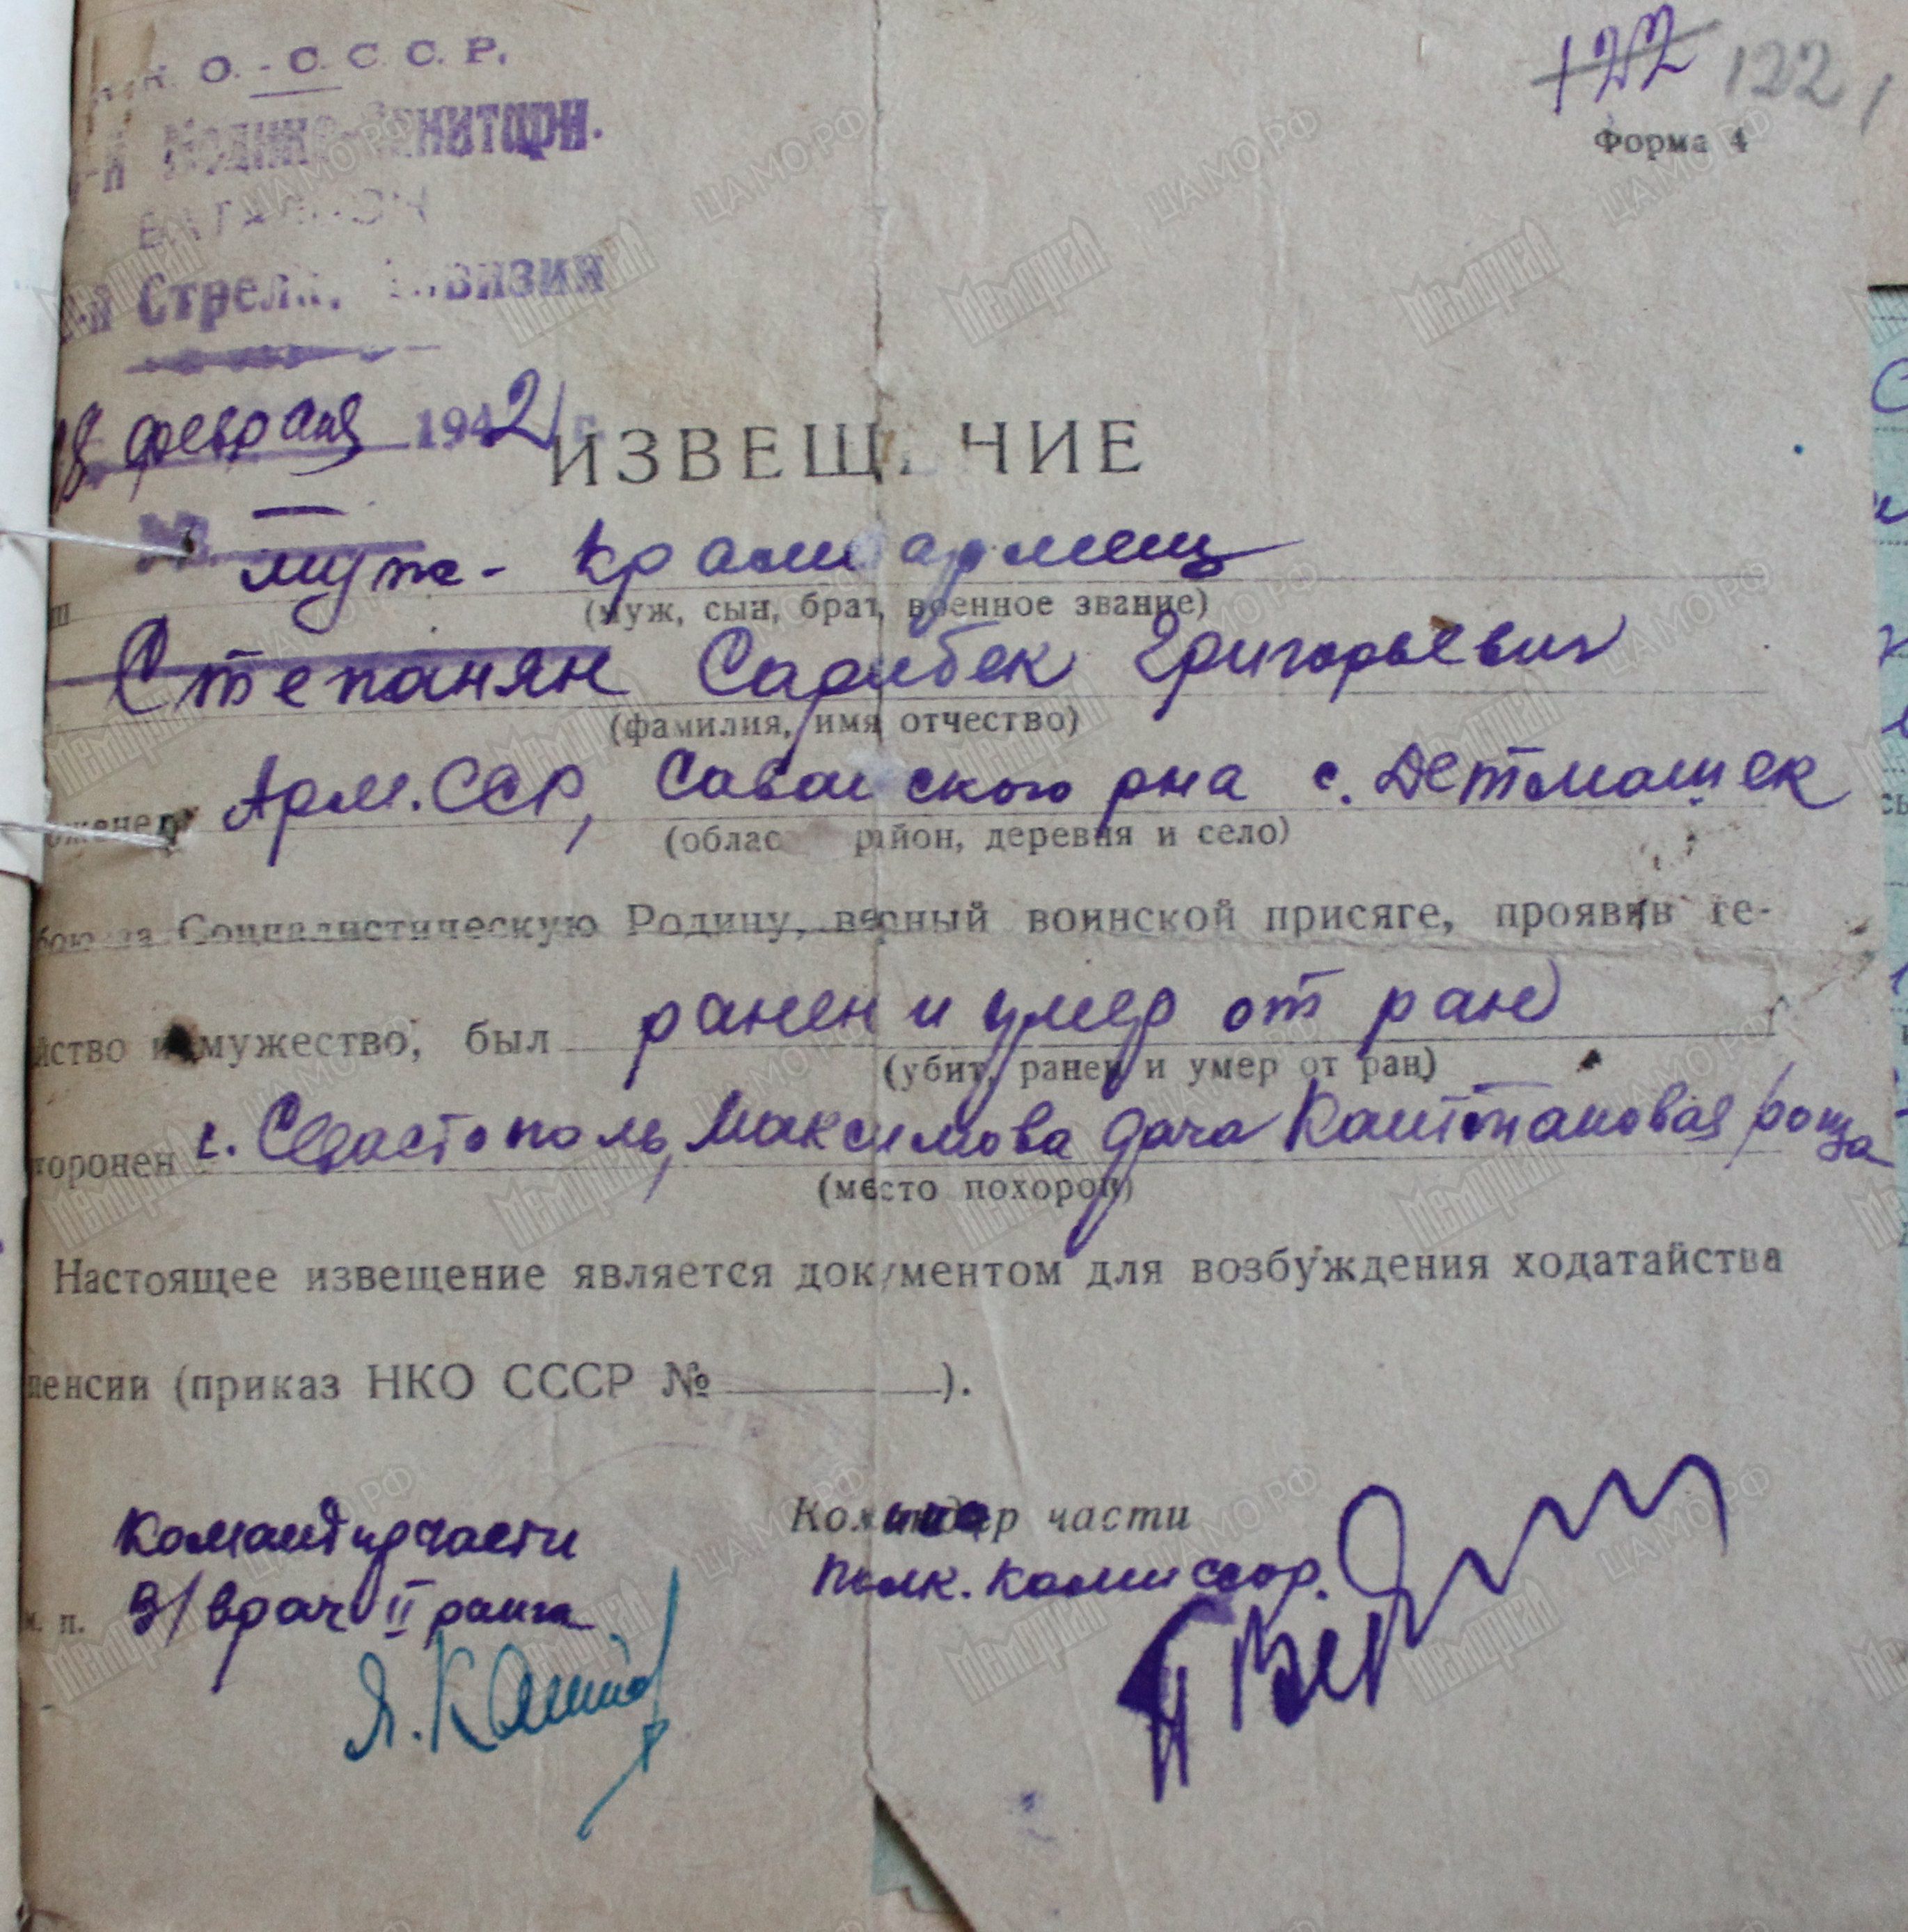 122 122
Форма 4
О.-С.С.С.Р.
Стрелк. дивизии
18 февраля 1942 г.
ИЗВЕЩЕНИЕ
муж - красноармеец
(муж, сын, брат, военное звание)
Степанян Сарибек Григорьевич
(фамилия, имя отчество)
Арм. ССР, ского рна с. Детмашек
(облас район, деревня и село)
бою за Социалистическую Родину, верный воинской присяге, проявив ге-
йство и мужество, был ранен и умер от ран
(убит, ранен и умер от ран)
хоронен г. Севастополь, Максимова дача Каштановая роща
(место похорон)
Настоящее извещение является документом для возбуждения ходатайства
пенсии (приказ НКО СССР № ).
Командир части Командир части
В/врач II ранга Полк. комиссар.
м. п.